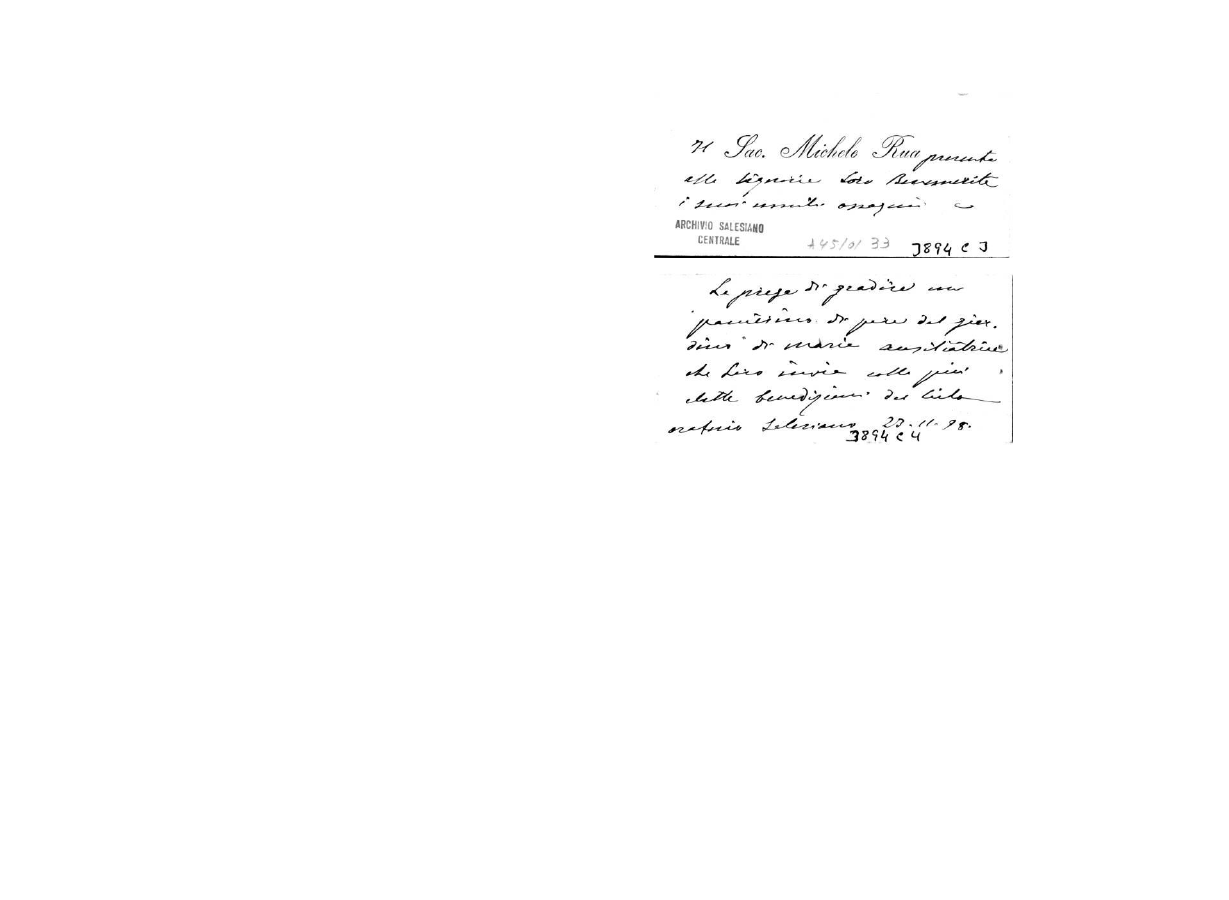 Il Sac. Michele Rua presenta
alle Signorie Loro Benemerite
i suoi umili ossequi
ARCHIVIO SALESIANO
CENTRALE
A45/01 33 3894 C 3
Le prega di gradire un
panierino di pere del giar.
dino di Maria Ausiliatrice
che Loro invia colle più
elette benedizioni del Cielo
Oratorio Salesiano 23-11-98.
3894 C 4